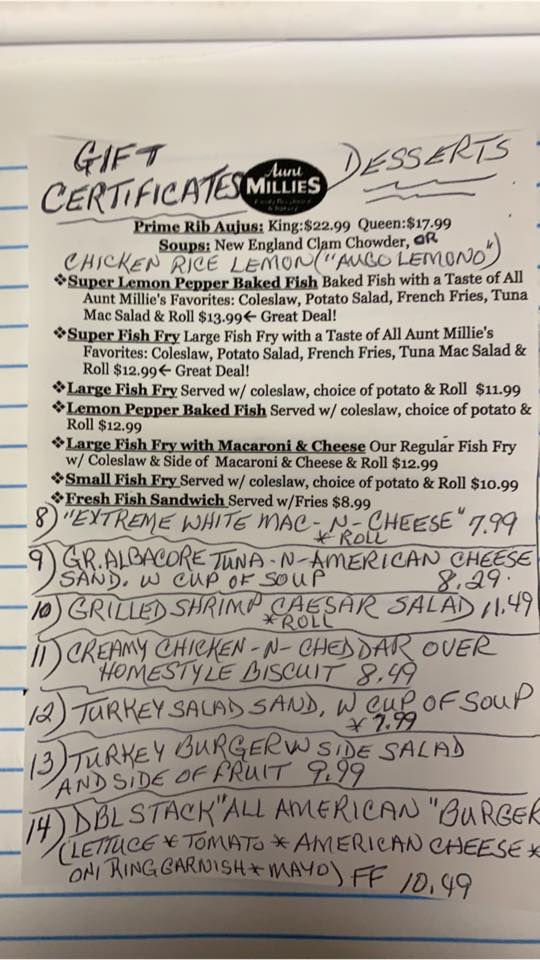 GIFT
CERTIFICATES
Aunt
MILLIES
DESSERTS
Prime Rib Aujus: King:$22.99 Queen:$17.99
Soups: New England Clam Chowder, OR
CHICKEN RICE LEMON ("AUGO LEMONO")
❖Super Lemon Pepper Baked Fish Baked Fish with a Taste of All
Aunt Millie's Favorites: Coleslaw, Potato Salad, French Fries, Tuna
Mac Salad & Roll $13.99← Great Deal!
❖Super Fish Fry Large Fish Fry with a Taste of All Aunt Millie's
Favorites: Coleslaw, Potato Salad, French Fries, Tuna Mac Salad &
Roll $12.99← Great Deal!
❖Large Fish Fry Served w/ coleslaw, choice of potato & Roll $11.99
❖Lemon Pepper Baked Fish Served w/ coleslaw, choice of potato &
Roll $12.99
❖Large Fish Fry with Macaroni & Cheese Our Regular Fish Fry
w/ Coleslaw & Side of Macaroni & Cheese & Roll $12.99
❖Small Fish Fry Served w/ coleslaw, choice of potato & Roll $10.99
❖Fresh Fish Sandwich Served w/Fries $8.99
8) "EXTREME WHITE MAC-N-CHEESE" 7.99
*ROLL
9) GR. ALBACORE TUNA-N-AMERICAN CHEESE
SAND. W CUP OF SOUP 8.29.
10) GRILLED SHRIMP CAESAR SALAD 11.49
*ROLL
11) CREAMY CHICKEN-N-CHEDDAR OVER
HOMESTYLE BISCUIT 8.49
12) TURKEY SALAD SAND. W CUP OF SOUP
*7.99
13) TURKEY BURGER W SIDE SALAD
AND SIDE OF FRUIT 9.99
14) DBL STACK "ALL AMERICAN" BURGER
(LETTUCE * TOMATO * AMERICAN CHEESE *
ONI RING GARNISH * MAYO) FF 10.49